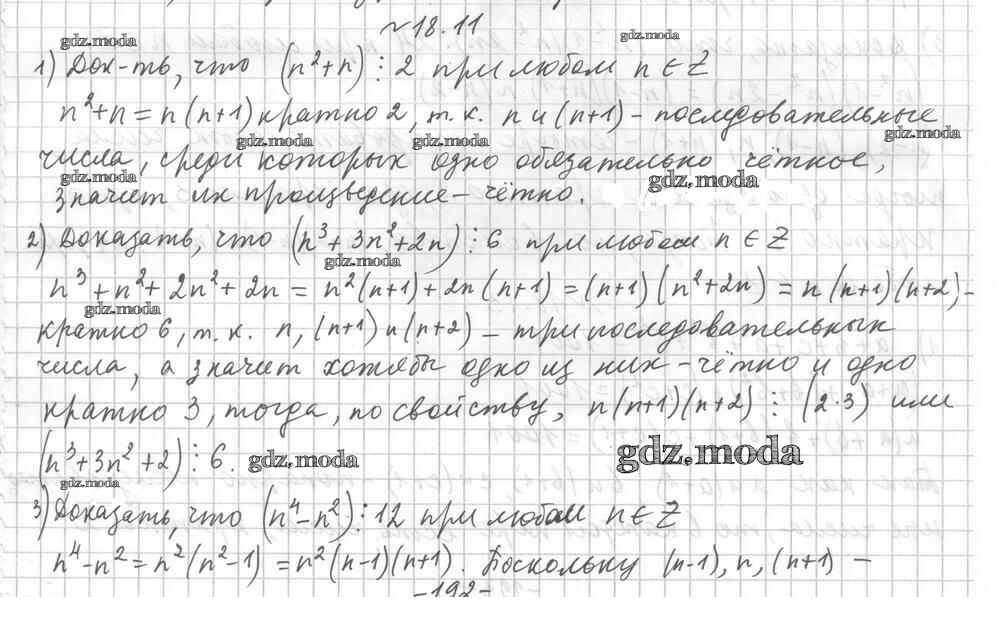 №18.11
gdz.moda gdz.moda
1) Док-ть, что (n²+n)⋮2 при любом n∈Z
n²+n = n(n+1) кратно 2, т.к. n и (n+1) - последовательные
gdz.moda gdz.moda gdz.moda
числа, среди которых одно обязательно чётное,
gdz.moda gdz.moda
значит их произведение - чётно.
2) Доказать, что (n³+3n²+2n)⋮6 при любом n∈Z
gdz.moda
n³+n²+2n²+2n = n²(n+1)+2n(n+1) = (n+1)(n²+2n) = n(n+1)(n+2) -
gdz.moda
кратно 6, т.к. n, (n+1) и (n+2) - три последовательных
числа, а значит хотябы одно из них - чётно и одно
кратно 3, тогда, по свойству, n(n+1)(n+2)⋮(2·3) или
(n³+3n²+2)⋮6. gdz.moda gdz.moda
gdz.moda
3) Доказать, что (n⁴-n²)⋮12 при любом n∈Z
n⁴-n² = n²(n²-1) = n²(n-1)(n+1). Поскольку (n-1), n, (n+1) -
-192-